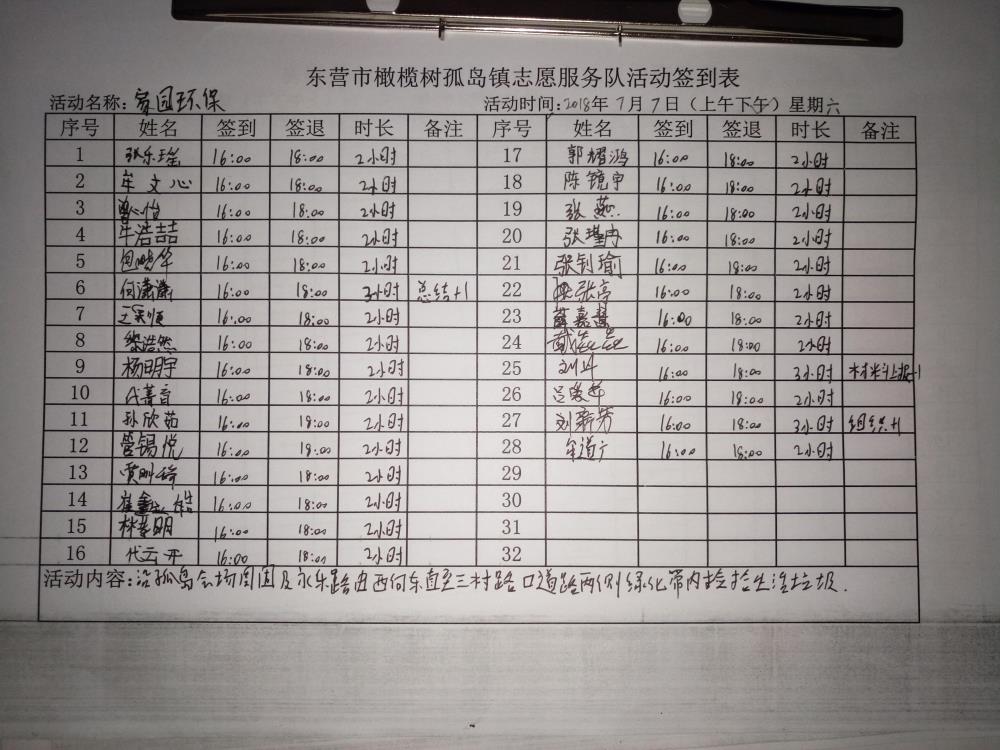 东营市橄榄树孤岛镇志愿服务队活动签到表
活动名称：家园环保 活动时间：2018年7月7日（上午下午）星期六
序号 姓名 签到 签退 时长 备注 序号 姓名 签到 签退 时长 备注
1 张乐瑶 16:00 18:00 2小时 17 郭耀鸿 16:00 18:00 2小时
2 牟文心 16:00 18:00 2小时 18 陈镜宇 16:00 18:00 2小时
3 16:00 18:00 2小时 19 张燕 16:00 18:00 2小时
4 牛浩喆 16:00 18:00 2小时 20 张瑾冉 16:00 18:00 2小时
5 16:00 18:00 2小时 21 张钊瑜 16:00 18:00 2小时
6 何潇潇 16:00 18:00 3小时 总结+1 22 张亭 16:00 18:00 2小时
7 16:00 18:00 2小时 23 薛嘉慧 16:00 18:00 2小时
8 黎浩然 16:00 18:00 2小时 24 16:00 18:00 2小时
9 杨明宇 16:00 18:00 2小时 25 刘丹 16:00 18:00 3小时 材料上报+1
10 代菁音 16:00 18:00 2小时 26 16:00 18:00 2小时
11 孙欣茹 16:00 18:00 2小时 27 刘新芳 16:00 18:00 3小时 组织+1
12 管锡悦 16:00 18:00 2小时 28 牟道广 16:00 18:00 2小时
13 16:00 18:00 2小时 29
14 16:00 18:00 2小时 30
15 16:00 18:00 2小时 31
16 代云开 16:00 18:00 2小时 32
活动内容：沿孤岛会场周围及永乐路由西向东直至三村路口道路两侧绿化带内捡拾生活垃圾.